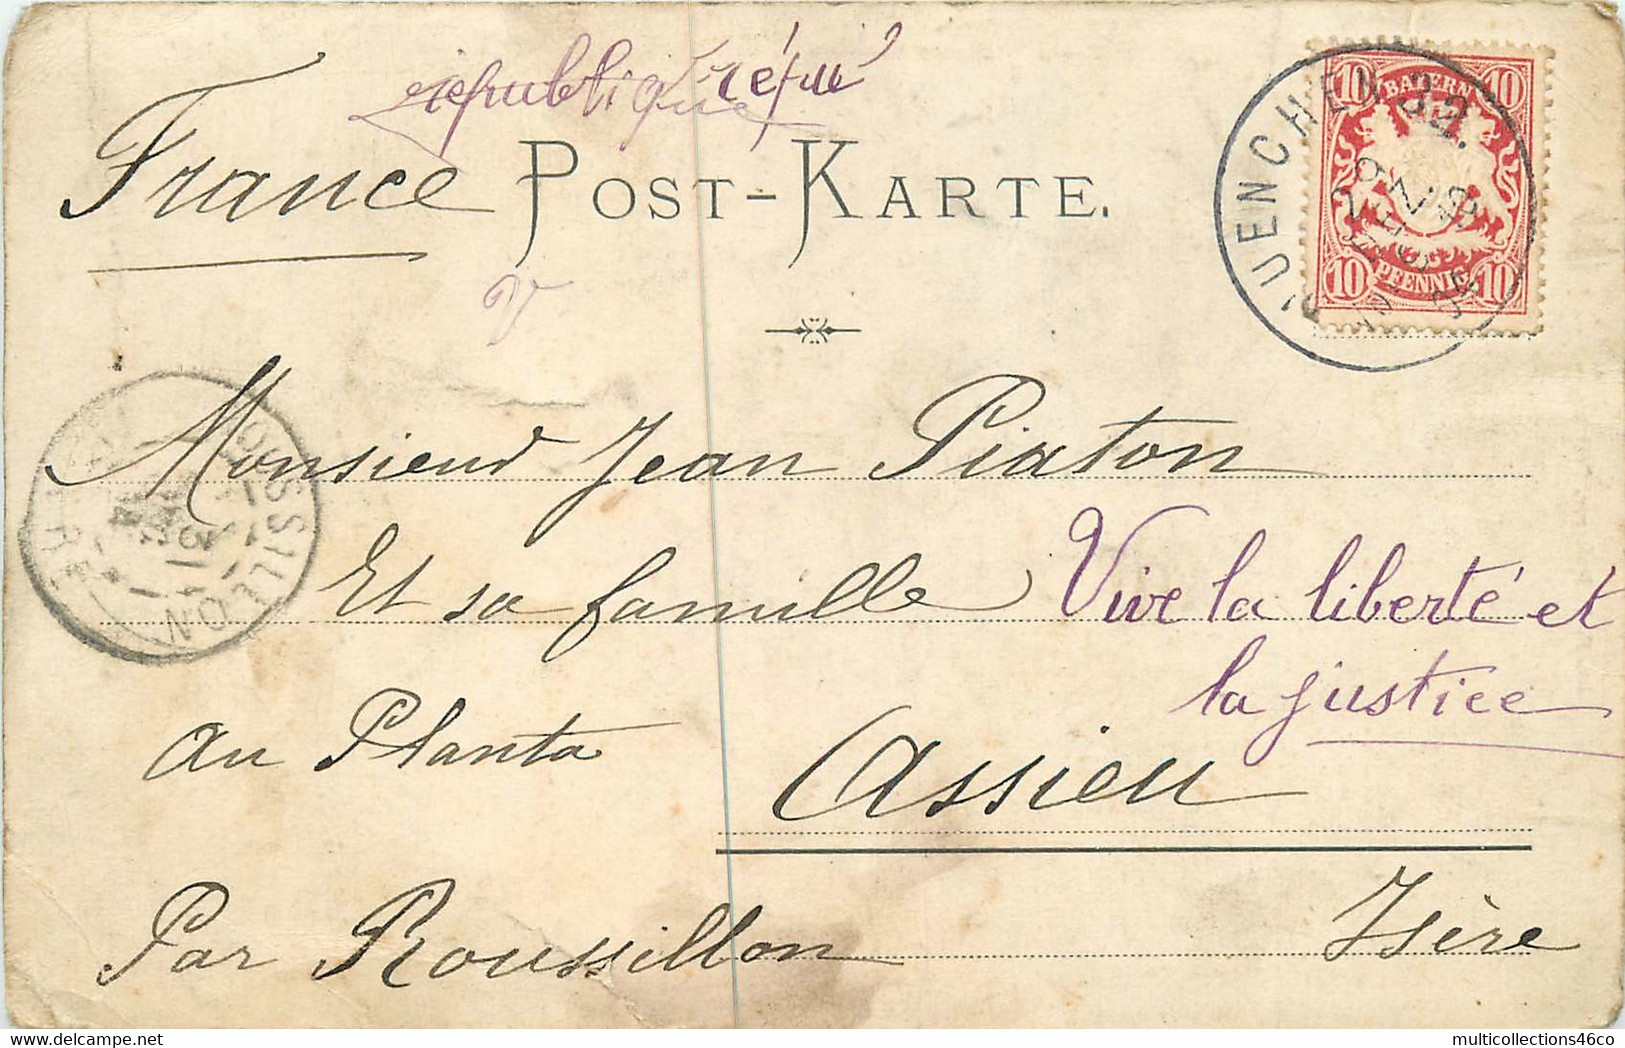 république
France
POST-KARTE.
MUENCHEN 32.
10 BAYERN 10
10 PFENNIG 10
Monsieur Jean Piaton
Et sa famille
Vive la liberté et
la justice
au Planta
Assieu
Par Roussillon
Isère
ROUSSILLON
ISERE
multicollections46co